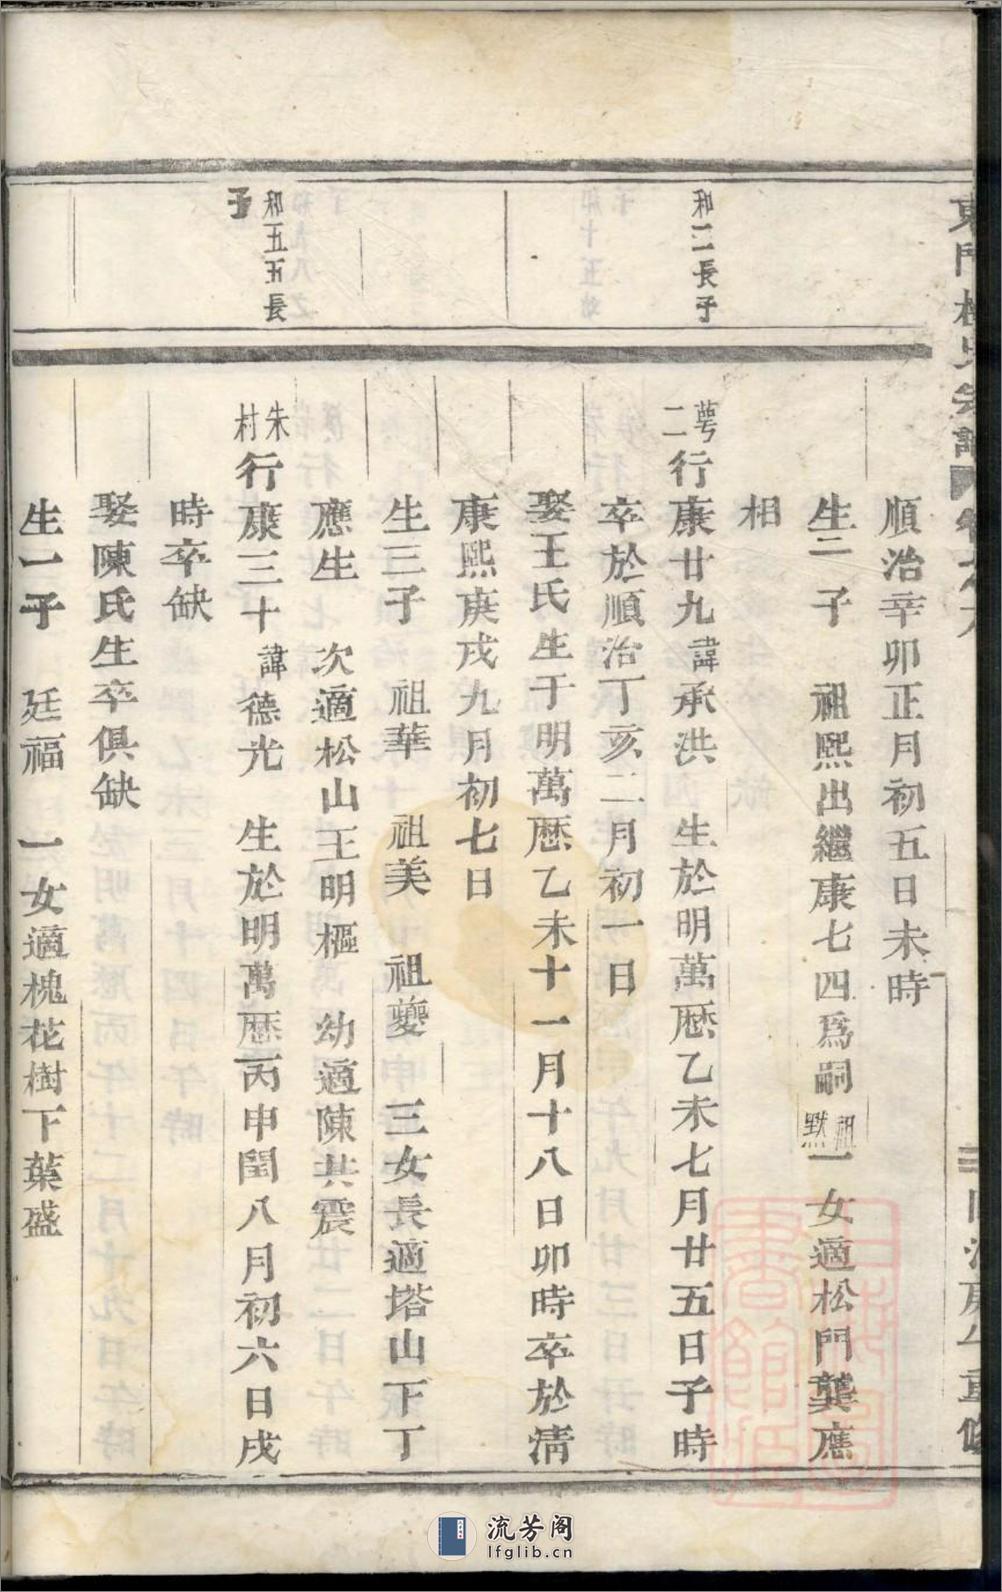 順治辛卯正月初五日未時
生二子 祖熙出繼康七四爲嗣 祖默 一女適松門龔應
相
和二長子
萼二 行康廿九 諱承洪 生於明萬厯乙未七月廿五日子時
卒於順治丁亥二月初一日
娶王氏生于明萬厯乙未十一月十八日卯時卒於清
康熙庚戌九月初七日
生三子 祖華 祖美 祖夔 三女長適塔山下丁
應生 次適松山王明樞 幼適陳其震
和五五長子
朱村 行康三十 諱德光 生於明萬厯丙申閏八月初六日戌
時卒缺
娶陳氏生卒俱缺
生一子 廷福 一女適槐花樹下葉盛
流芳阁
lfglib.cn